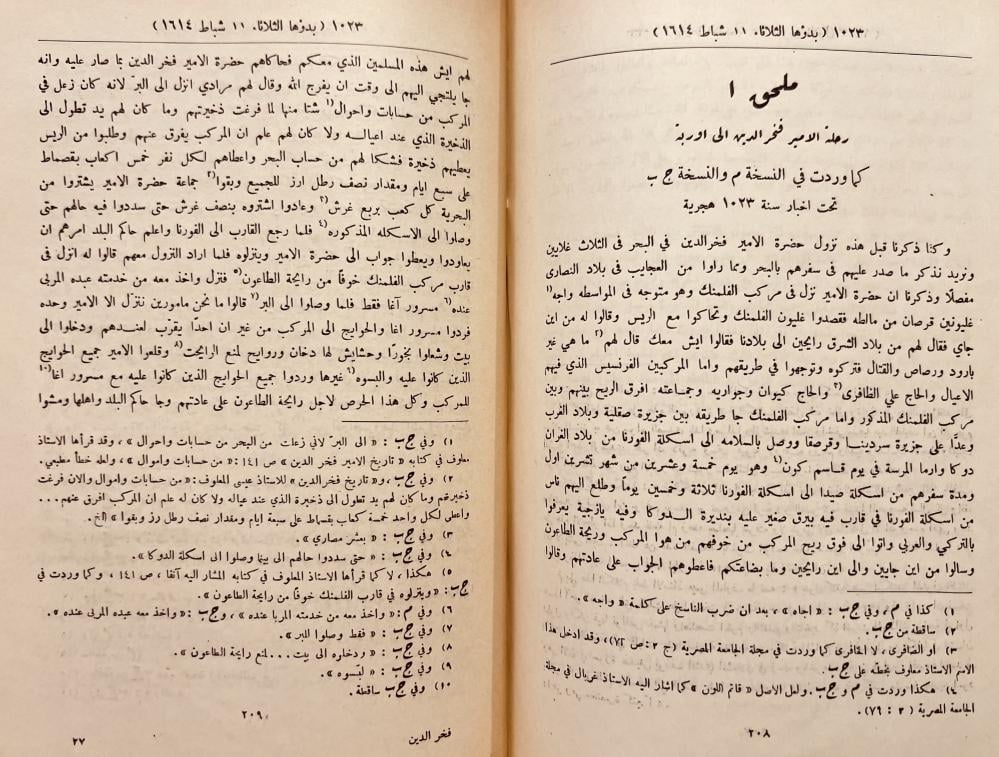 ١٠٢٣ ( بدؤها الثلاثا. ١١ شباط ١٦١٤ )
ملحق ١
رحلة الامير فخر الدين الى اوربة
كما وردت في النسخة م والنسخة ج ب
تحت اخبار سنة ١٠٢٣ هجرية
وكنا ذكرنا قبل هذه نزول حضرة الامير فخرالدين في البحر فى الثلاث غلايين
ونريد نذكر ما صدر عليهم فى سفرهم بالبحر ومما راوا من العجايب فى بلاد النصارى
مفصلًا وذكرنا ان حضرة الامير نزل فى مركب الفلمنك وهو متوجه فى المواسطه واجه(١
غليونين قرصان من مالطه فقصدوا غليون الفلمنك وتحاكوا مع الريس وقالوا له من اين
جاي فقال لهم من بلاد الشرق رايحين الى بلادنا فقالوا ايش معك قال لهم(٢ ما هي غير
بارود ورصاص والقتال فتركوه وتوجهوا في طريقهم واما المركبين الفرنسيس الذي فيهم
الاعيال والحاج علي الظافرى(٣ والحاج كيوان وجواريه وجماعته افرق الريح بينهم وبين
مركب الفلمنك المذكور واما مركب الفلمنك جا طريقه بين جزيرة صقلية وبلاد الغرب
وعدًا على جزيرة سردينيا وقرصقا ووصل بالسلامه الى اسكلة الفورنا من بلاد القران
دوكا وارما المرسة في يوم قاسم كون(٤ وهو يوم خمسة وعشرين من شهر تشرين اول
ومدة سفرهم من اسكلة صيدا الى اسكلة الفورنا ثلاثة وخمسين يوماً وطلع اليهم ناس
من اسكلة الفورنا في قارب فيه بيرق صغير عليه بنديرة الدوكا وفيه يازجية يعرفوا
بالتركي والعربي واتوا الى فوق ريح المركب من خوفهم من هوا المركب وريحة الطاعون
وسالوا من اين جايين والى اين رايحين وما بضاعتكم فاعطوهم الجواب على عادتهم وقالوا
١) كذا في م، وفي ج ب : « اجاه » ، بعد ان ضرب الناسخ على كلمة « واجه ».
٢) ساقطة من ج ب.
٣) او الضافرى، لا المقافرى كما وردت في مجلة الجامعة المصرية (ج ٢ : ص ٧٢)، وقد ادخل هذا
الاسم الاستاذ معلوف بخطّه على ج ب.
٤) هكذا وردت في م و ج ب. ولعل الاصل « قاتم اللون » كما اشار اليه الاستاذ غربال في مجلة
الجامعة المصرية ( ٢ : ٧٩ ).
٢٠٨
١٠٢٣ ( بدؤها الثلاثا. ١١ شباط ١٦١٤ )
لهم ايش هذه المسلمين الذي معكم فحاكاهم حضرة الامير فخر الدين بما صار عليه وانه
جا يلتجي اليهم الى وقت ان يفرج الله وقال لهم مرادي انزل الى البرّ لانه كان زعل في
المركب من حسابات واحوال(١ شتا منها لما فرغت ذخيرتهم وما كان لهم يد تطول الى
الذخيرة الذي عند اعياله ولا كان لهم علم ان المركب يفرق عنهم وطلبوا من الريس
يعطيهم ذخيرة فشكا لهم من حساب البحر واعطاهم لكل نفر خمس اكعاب بقصماط
على سبع ايام ومقدار نصف رطل ارز للجميع وبقوا(٢ جماعة حضرة الامير يشتروا من
البحرية كل كعب بربع غرش(٣ وعادوا اشتروه بنصف غرش حتى سددوا فيه حالهم حتى
وصلوا الى الاسكله المذكوره(٤ فلما رجع القارب الى الفورنا واعلم حاكم البلد امرهم ان
يعاودوا ويعطوا جواب الى حضرة الامير وينزلوه فلما اراد النزول معهم قالوا له انزل فى
قارب مركب الفلمنك خوفًا من رايحة الطاعون(٥ فنزل واخذ معه من خدمته عبده المربى
عنده(٦ مسرور آغا فقط فلما وصلوا الى البر(٧ قالوا ما نحن مامورين ننزل الا الامير وحده
فردوا مسرور اغا والحوايج الى المركب من غير ان احدًا يقرّب لعندهم ودخلوا الى
بيت وشعلوا بخورًا وحشايش لها دخان وروايح لمنع الرايحت(٨ وقلعوا الامير جميع الحوايج
الذين كانوا عليه والبسوه(٩ غيرها وردوا جميع الحوايج الذين كانوا عليه مع مسرور اغا(١٠
للمركب وكل هذا الحرص لاجل رايحة الطاعون على عادتهم وجا حاكم البلد واهلها ومشوا
١) وفي ج ب : « الى البرّ لاني زعلت من البحر من حسابات واحوال » ، وقد قرأها الاستاذ
معلوف في كتابه « تاريخ الامير فخر الدين » ص ١٤١ : « من حسابات واموال » ، ولعله خطأ مطبعي.
٢) وفي ج ب ، و« تاريخ فخرالدين » للاستاذ عيسى المعلوف : « من حسابات واموال والان فرغت
ذخيرتهم وما كان لهم يد تطول الى ذخيرة الذي عند عياله ولا كان له علم ان المركب افرق عنهم ...
واعطى لكل واحد خمسة كعاب بقسماط على سبعة ايام ومقدار نصف رطل رز وبقوا » الخ.
٣) وفي ج ب : « بعشر مصاري ».
٤) وفي ج ب : « حتى سددوا حالهم الى بينما وصلوا الى اسكلة الدوكا ».
٥) هكذا ، لا كما قرأها الاستاذ المعلوف في كتابه المشار اليه آنفا ، ص ١٤١ ، وكما وردت في
ج ب : « وينزلوه في قارب الفلمنك خوفًا من رايحة الطاعون ».
٦) وفي م : « واخذ معه من خدمته المربا عنده » ، و ج ب : « واخذ معه عبده المربى عنده ».
٧) وفي ج ب : « فقط وصلوا للبر ».
٨) وفي ج ب : « ودخلوه الى بيت ... لمنع رايحة الطاعون ».
٩) وفي ج ب : « لبّسوه ».
١٠) وفي ج ب ساقطة.
٢٠٩
فخر الدين
٢٧